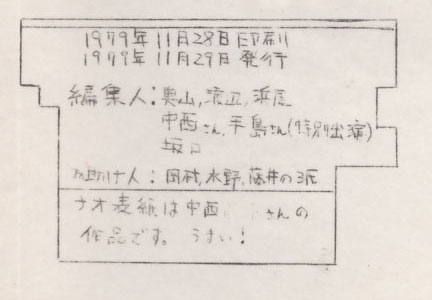 1979年11月28日印刷
1979年11月29日発行
編集人：奥山,渡辺,浜辰
中西さん,手島さん(特別出演)
坂口
人：岡村,水野,藤井の3氏
ナオ表紙は中西さんの
作品です。うまい！